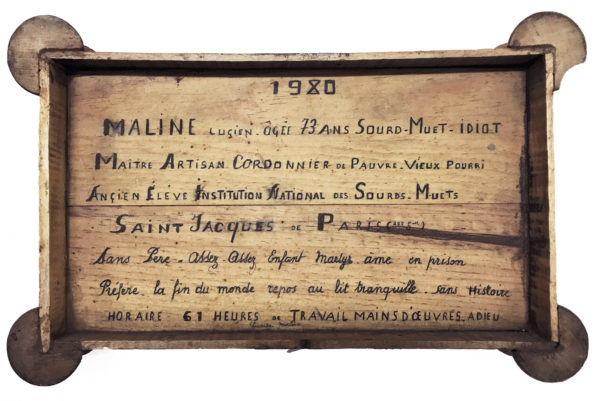 1980
MALINE LUCIEN. ÂGÉE 73 ANS SOURD-MUET-IDIOT
MAITRE ARTISAN CORDONNIER DE PAUVRE. VIEUX POURRI
ANCIEN ÉLÈVE INSTITUTION NATIONAL DES SOURDS. MUETS
SAINT JACQUES DE PARIS
Sans Père - Assez - Assez Enfant Martyr âme en prison
Préfère la fin du monde repos au lit tranquille. sans Histoire
HORAIRE 61 HEURES DE TRAVAIL MAINS D'ŒUVRES. ADIEU